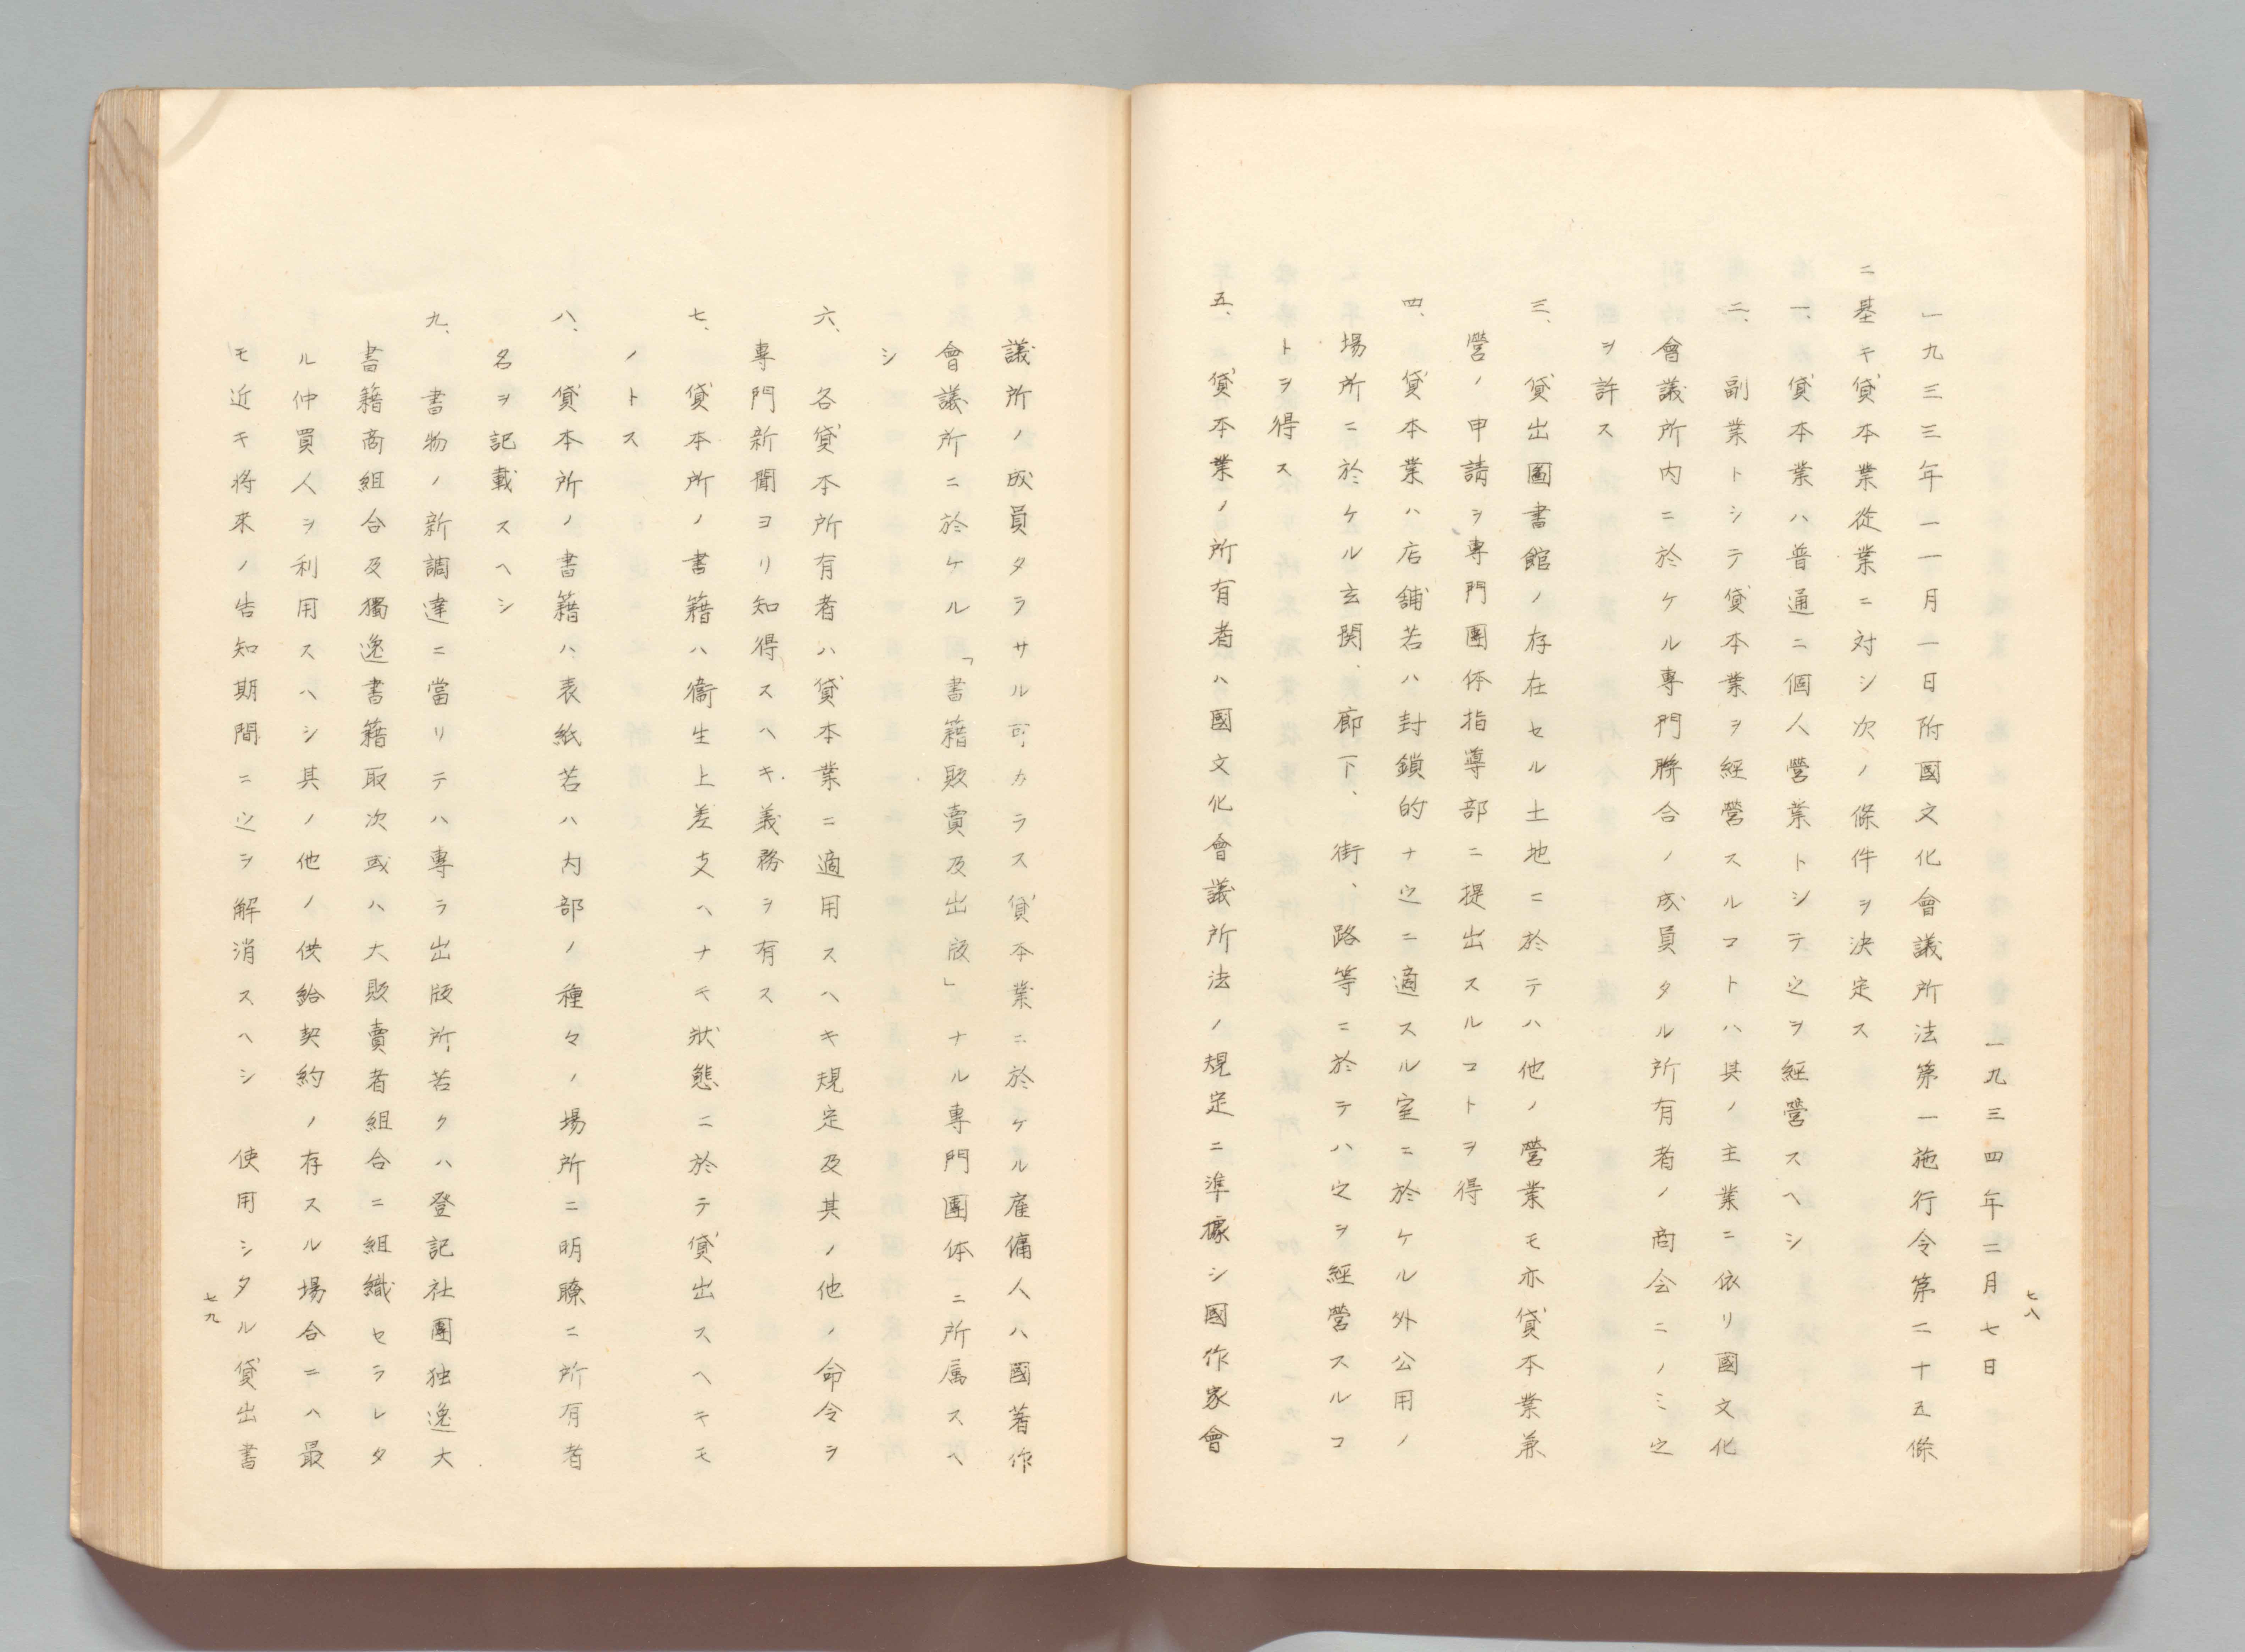 七八
一九三四年二月七日
一九三三年一一月一日附國文化會議所法第一施行令第二十五條
ニ基キ貸本業從業ニ対シ次ノ條件ヲ決定ス
一、貸本業ハ普通ニ個人營業トシテ之ヲ經營スヘシ
二、副業トシテ貸本業ヲ經營スルコトハ其ノ主業ニ依リ國文化
會議所内ニ於ケル專門聯合ノ成員タル所有者ノ商会ニノミ之
ヲ許ス
三、貸出圖書館ノ存在セル土地ニ於テハ他ノ營業モ亦貸本業兼
營ノ申請ヲ專門團体指導部ニ提出スルコトヲ得
四、貸本業ハ店舗若ハ封鎖的ナ之ニ適スル室ニ於ケル外公用ノ
場所ニ於ケル玄関、廊下、街、路等ニ於テハ之ヲ經營スルコ
トヲ得ス
五、貸本業ノ所有者ハ國文化會議所法ノ規定ニ準據シ國作家會
議所ノ成員タラサル可カラス貸本業ニ於ケル雇傭人ハ國著作
會議所ニ於ケル「書籍販賣及出版」ナル專門團体ニ所属スヘ
シ
六、各貸本所有者ハ貸本業ニ適用スヘキ規定及其ノ他ノ命令ヲ
專門新聞ヨリ知得スヘキ義務ヲ有ス
七、貸本所ノ書籍ハ衞生上差支ヘナキ狀態ニ於テ貸出スヘキモ
ノトス
八、貸本所ノ書籍ハ表紙若ハ内部ノ種々ノ場所ニ明瞭ニ所有者
名ヲ記載スヘシ
九、書物ノ新調達ニ當リテハ專ラ出版所若クハ登記社團独逸大
書籍商組合及獨逸書籍取次或ハ大販賣者組合ニ組織セラレタ
ル仲買人ヲ利用スヘシ其ノ他ノ供給契約ノ存スル場合ニハ最
モ近キ将來ノ告知期間ニ之ヲ解消スヘシ　使用シタル貸出書
七九